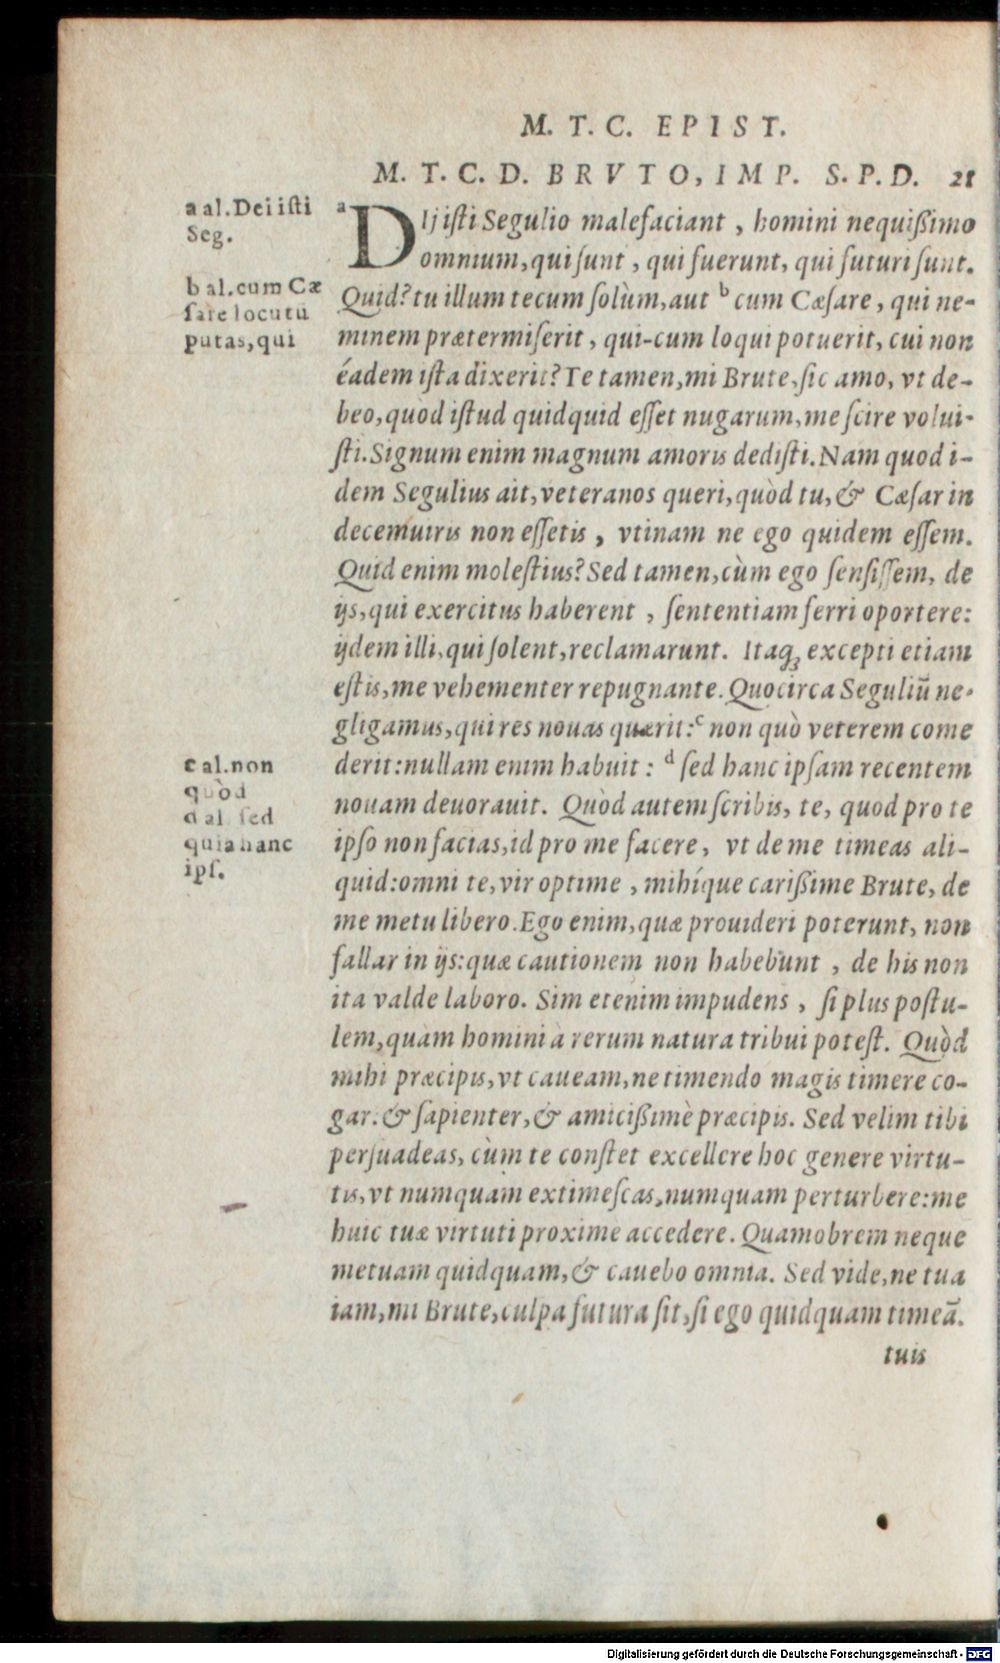 M. T. C. EPIST.
M. T. C. D. BRVTO, IMP. S. P. D. 21
a al. Dei isti
Seg.
b al. cum Cæ
sare locutũ
putas, qui
c al. non
quòd
d al. sed
quia hanc
ips.
ᵃ DIj isti Segulio malefaciant, homini nequißimo
omnium, qui sunt, qui fuerunt, qui futuri sunt.
Quid? tu illum tecum solùm, aut ᵇ cum Cæsare, qui ne-
minem prætermiserit, qui-cum loqui potuerit, cui non
éadem ista dixerit? Te tamen, mi Brute, sic amo, vt de-
beo, quòd istud quidquid esset nugarum, me scire volui-
sti. Signum enim magnum amoris dedisti. Nam quod i-
dem Segulius ait, veteranos queri, quòd tu, & Cæsar in
decemuiris non essetis, vtinam ne ego quidem essem.
Quid enim molestius? Sed tamen, cùm ego sensissem, de
ijs, qui exercitus haberent, sententiam ferri oportere:
ijdem illi, qui solent, reclamarunt. Itaq; excepti etiam
estis, me vehementer repugnante. Quocirca Seguliũ ne-
gligamus, qui res nouas quærit: ᶜ non quò veterem come
derit: nullam enim habuit: ᵈ sed hanc ipsam recentem
nouam deuorauit. Quòd autem scribis, te, quod pro te
ipso non facias, id pro me facere, vt de me timeas ali-
quid: omni te, vir optime, mihíque carißime Brute, de
me metu libero. Ego enim, quæ prouideri poterunt, non
fallar in ijs: quæ cautionem non habebunt, de his non
ita valde laboro. Sim etenim impudens, si plus postu-
lem, quàm homini à rerum natura tribui potest. Quòd
mihi præcipis, vt caueam, ne timendo magis timere co-
gar: & sapienter, & amicißimè præcipis. Sed velim tibi
persuadeas, cùm te constet excellere hoc genere virtu-
tis, vt numquam extimescas, numquam perturbere: me
huic tuæ virtuti proxime accedere. Quamobrem neque
metuam quidquam, & cauebo omnia. Sed vide, ne tua
iam, mi Brute, culpa futura sit, si ego quidquam timeã.
tuis
Digitalisierung gefördert durch die Deutsche Forschungsgemeinschaft - DFG